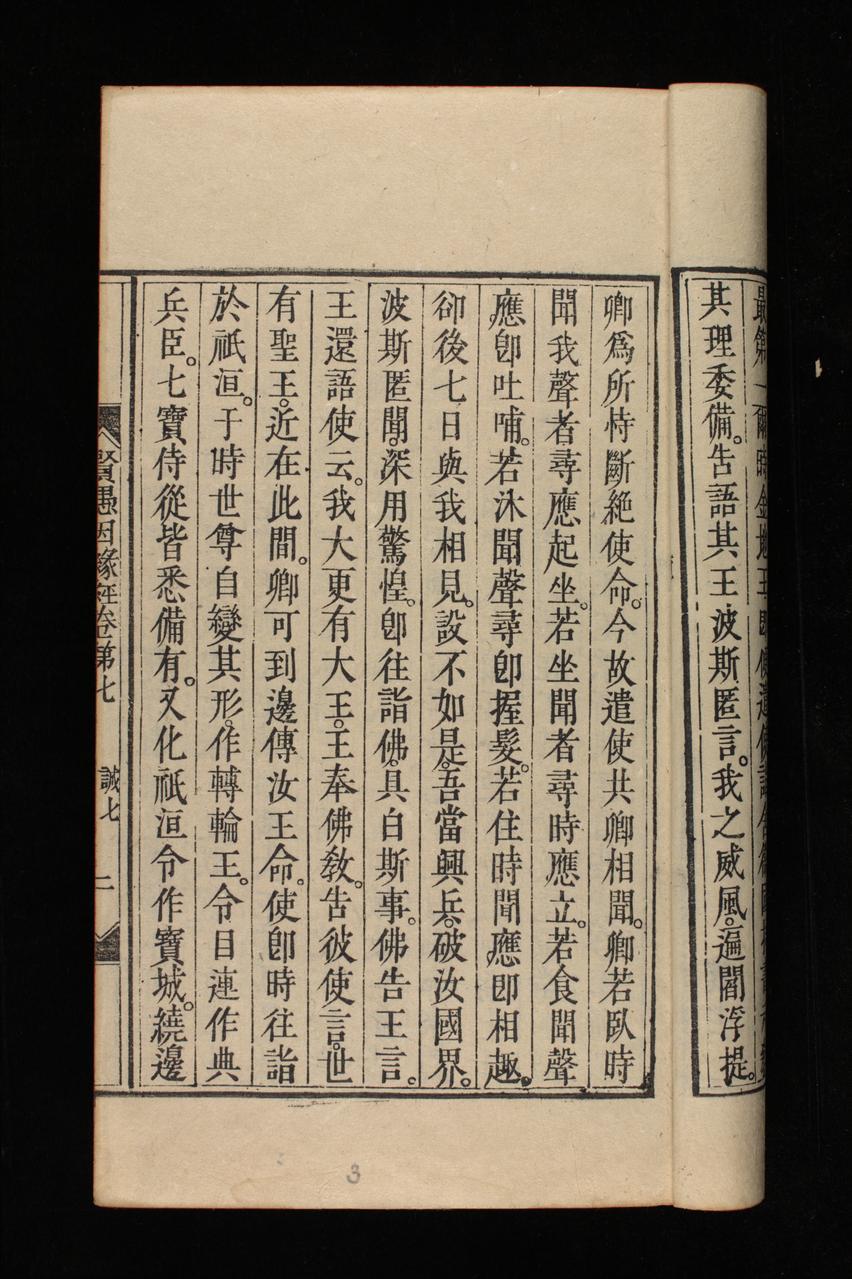 最第一爾時金地王即
其理委備。告語其王波斯匿言。我之威風。遍閻浮提。
卿爲所恃斷絶使命。今故遣使共卿相聞。卿若臥時
聞我聲者尋應起坐。若坐聞者尋時應立。若食聞聲
應卽吐哺。若沐聞聲尋卽握髮。若住時聞應卽相趣。
卻後七日與我相見。設不如是。吾當興兵。破汝國界。
波斯匿聞。深用驚惶。卽往詣佛。具白斯事。佛告王言。
王還語使云。我大更有大王。王奉佛敎。告彼使言。世
有聖王。近在此間。卿可到邊傳汝王命。使卽時往詣
於祇洹。于時世尊自變其形。作轉輪王。令目連作典
兵臣。七寶侍從皆悉備有。又化祇洹令作寶城。繞邊
賢愚因緣經卷第七 誠七 二
3